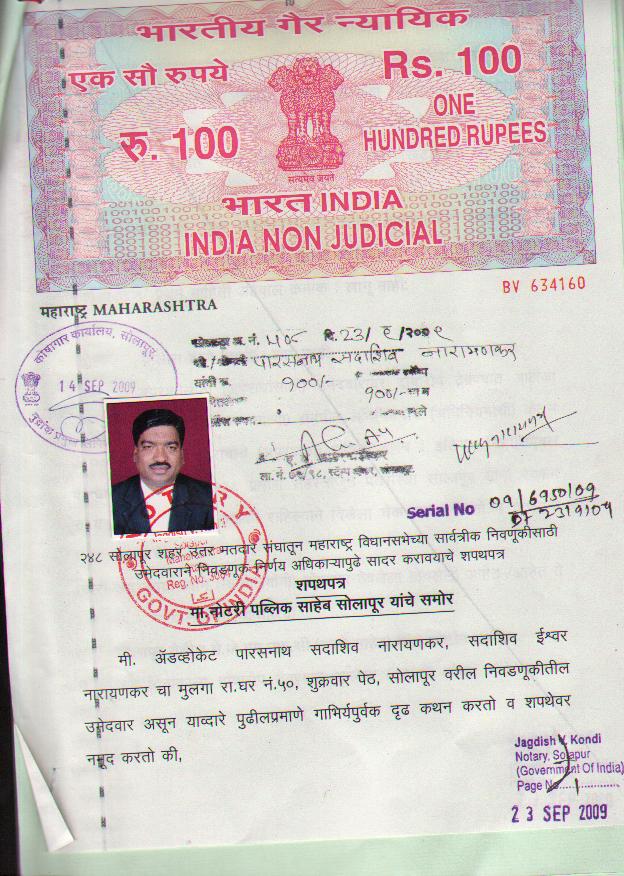 भारतीय गैर न्यायिक
एक सौ रुपये
Rs. 100
रु. 100
ONE
HUNDRED RUPEES
सत्यमेव जयते
भारत INDIA
INDIA NON JUDICIAL
BV 634160
महाराष्ट्र MAHARASHTRA
कोषागार कार्यालय, सोलापूर.
14 SEP 2009
पारसनाथ सदाशिव नारायणकर
100/-
100/-
Serial No 09/6950/09
NOTARY
Reg. No.
GOVT. OF INDIA
२४८ सोलापूर शहर उत्तर मतदार संघातून महाराष्ट्र विधानसभेच्या सार्वत्रीक निवणूकीसाठी
उमेदवाराने निवडणूक निर्णय अधिकाऱ्यापुढे सादर करावयाचे शपथपत्र
शपथपत्र
मा.नोटरी पब्लिक साहेब सोलापूर यांचे समोर
मी. ॲडव्होकेट पारसनाथ सदाशिव नारायणकर, सदाशिव ईश्वर
नारायणकर चा मुलगा रा.घर नं.५०, शुक्रवार पेठ, सोलापूर वरील निवडणूकीतील
उमेदवार असून याव्दारे पुढीलप्रमाणे गाभिर्यपुर्वक दृढ कथन करतो व शपथेवर
नमूद करतो की,
Jagdish V. Kondi
Notary, Solapur
(Government Of India)
Page No. 1
23 SEP 2009